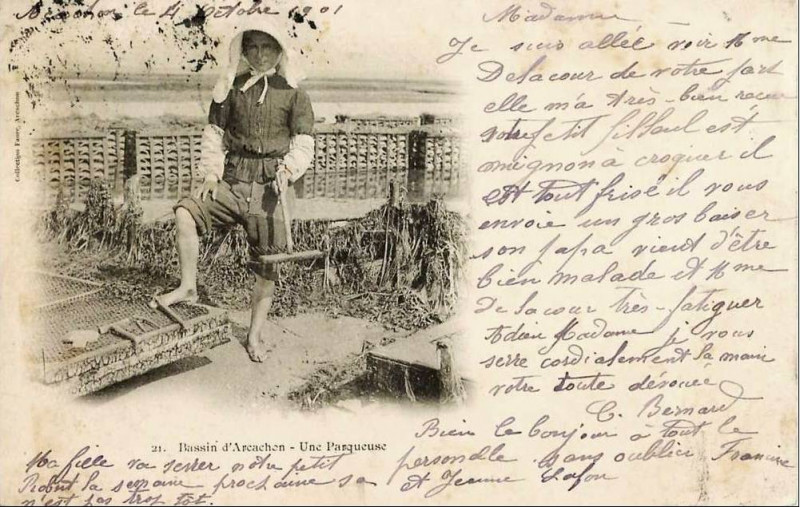 Arcachon le 4 Octobre 1901
Madame
Je suis allée voir Mme
Delacour de votre part
elle m'a très-bien reçue
votre petit filleul est
mignon à croquer il
est tout frisé il vous
envoie un gros baiser
son papa vient d'être
bien malade et Mme
Delacour très-fatiguer
Adieu Madame je vous
serre cordialement la main
votre toute dévouée
C. Bernard
Bien le bonjour à tout le
personelle sans oublier Francine
et Jeanne Lafon
Collection Faure, Arcachon
21. Bassin d'Arcachon - Une Parqueuse
Ma fille va serrer notre petit
Robert la semaine prochaine sa
n'est pas trop tot.